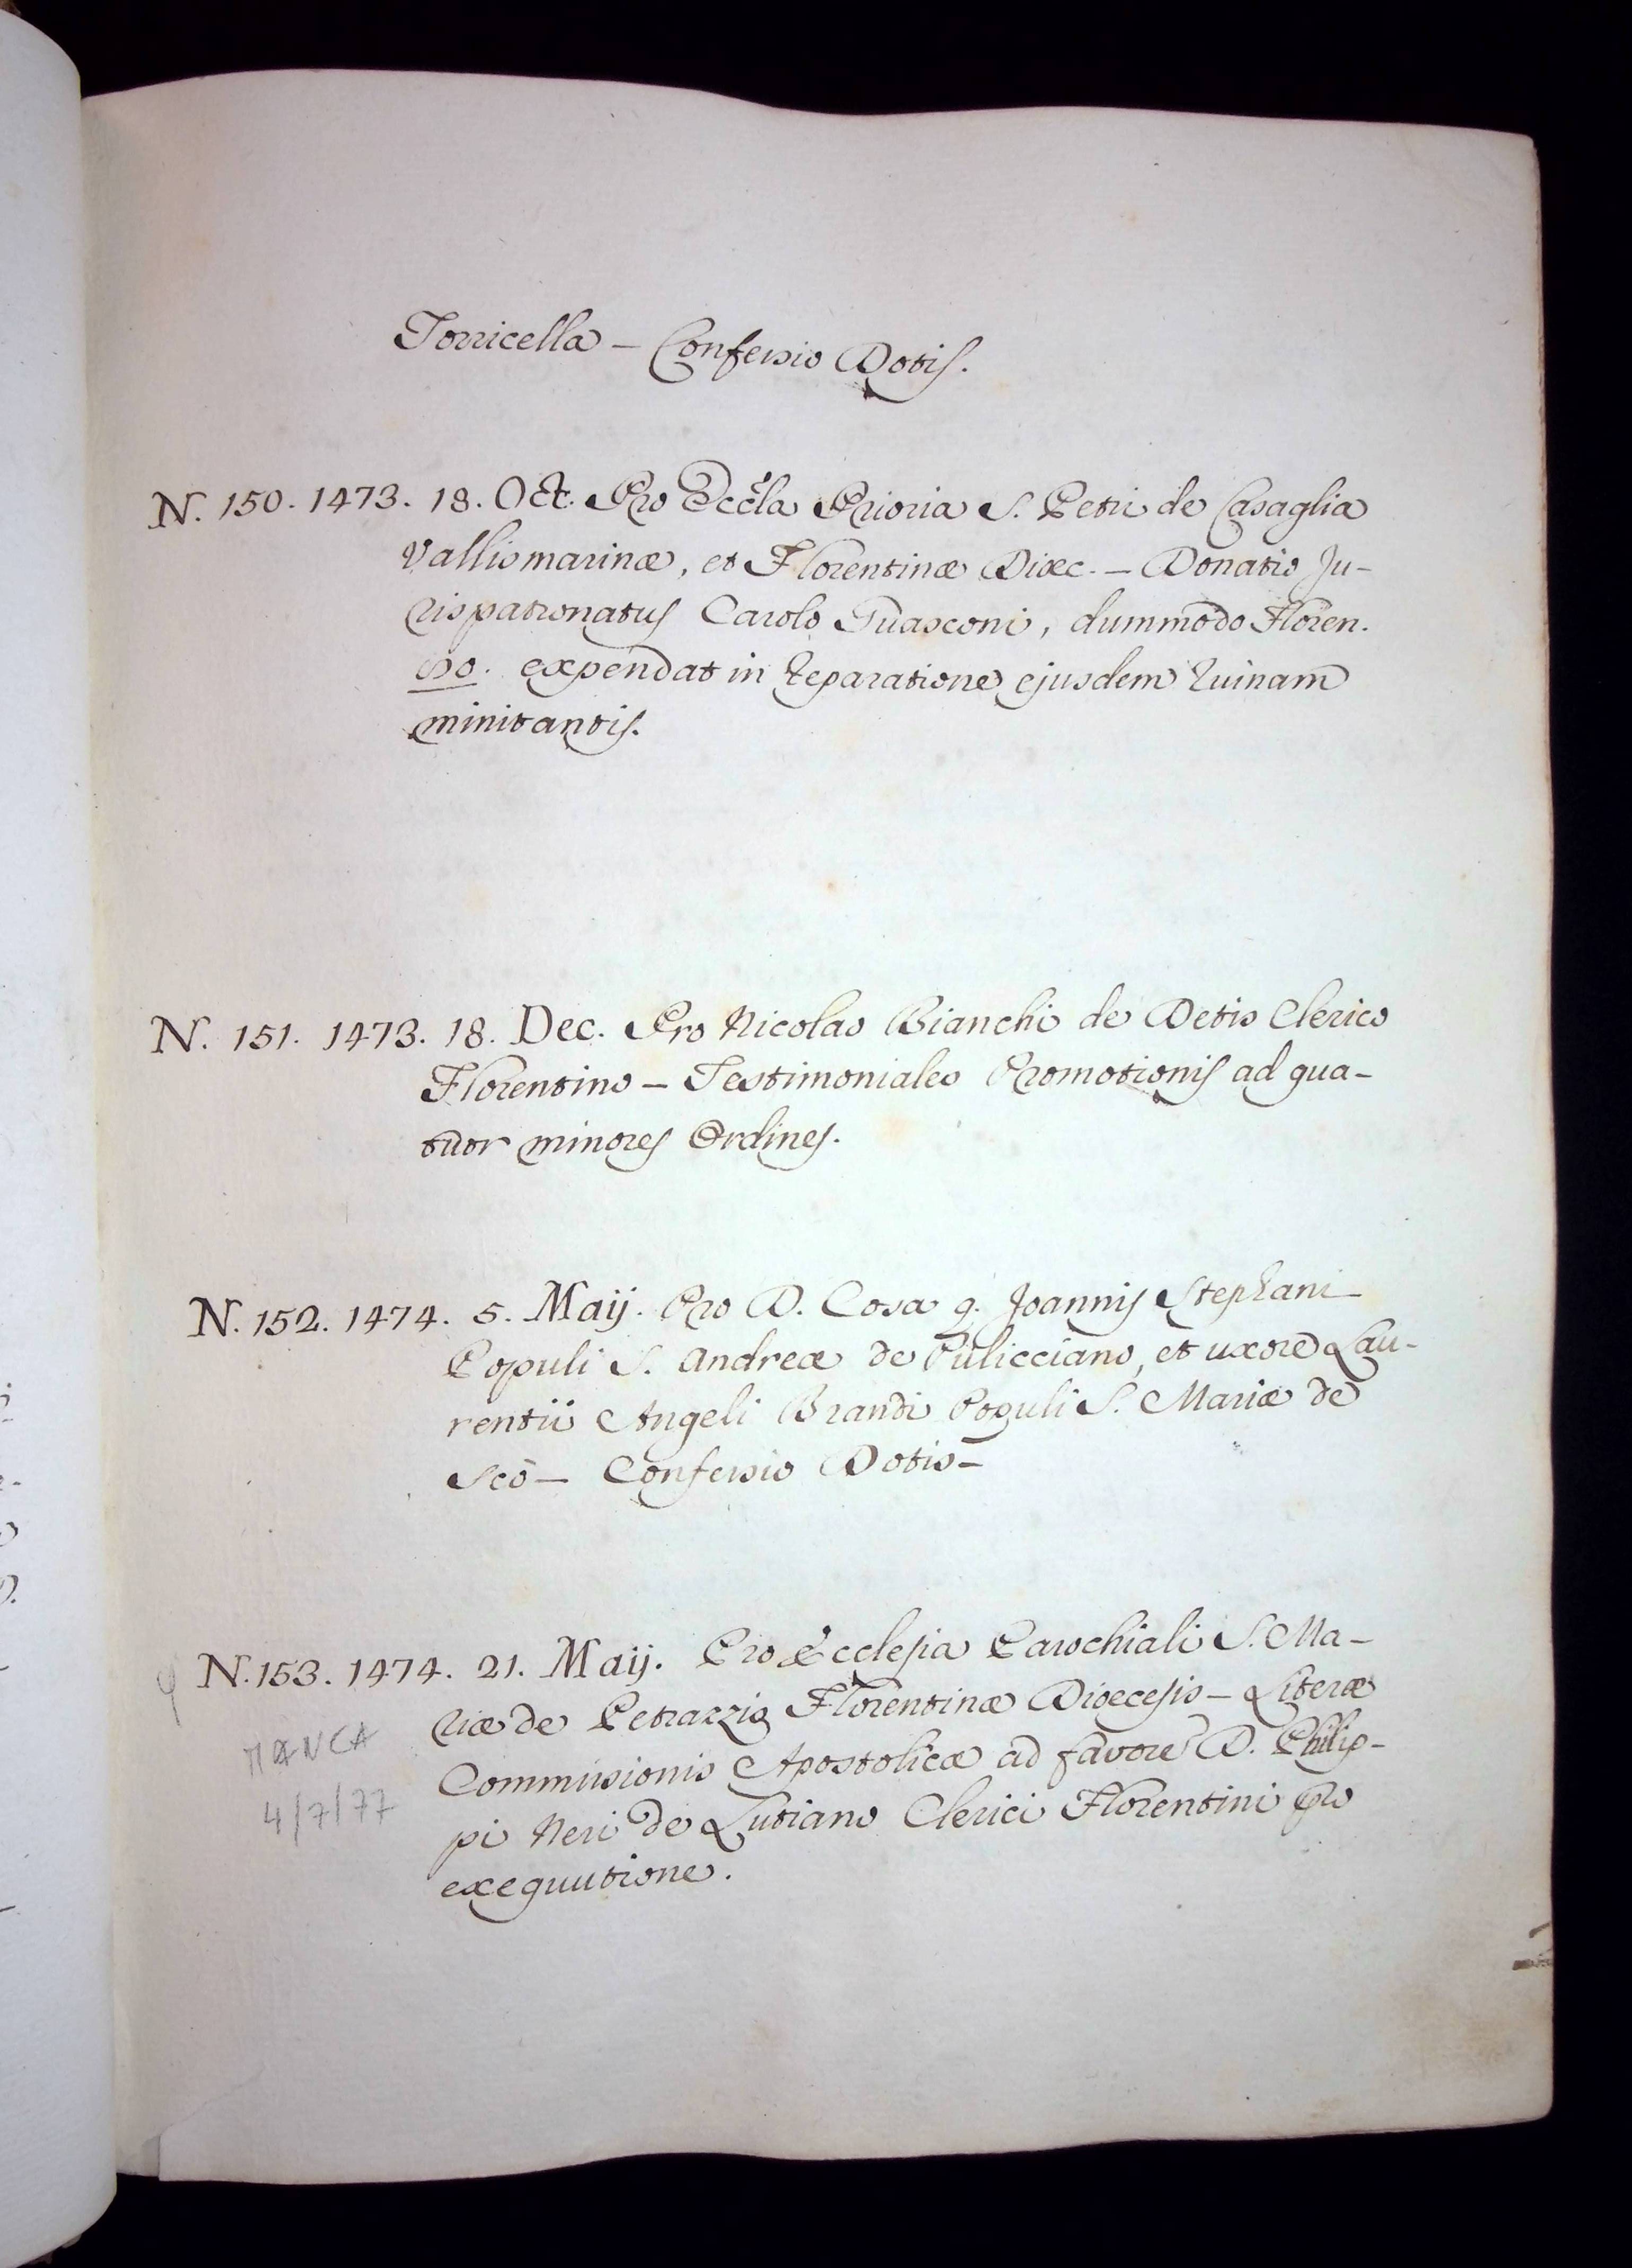 Torricella – Confessio Dotis.
N. 150. 1473. 18. Oct. Pro Eccla Prioria S. Petri de Casaglia
Vallismarinæ, et Florentinæ Diœc. – Donatio Ju-
rispatronatus Carolo Guasconi, dummodo Floren.
expendat in reparatione ejusdem ruinam
minitantis.
N. 151. 1473. 18. Dec. Pro Nicolao Bianchi de Detis Clerico
Florentino – Testimoniales Promotionis ad qua-
tuor minores Ordines.
N. 152. 1474. 5. Maij. Pro D. Cosa q. Joannis Stephani
Populi S. Andreæ de Pulicciano, et uxore Lau-
rentii Angeli Brandi Populi S. Mariæ de
Sco – Confessio Dotis –
N. 153. 1474. 21. Maij. Pro Ecclesia Parochiali S. Ma-
riæ de Petrazzi Florentinæ Diœcesis – Literæ
Commissionis Apostolicæ ad favore D. Philip-
pi Neri de Lutiano Clerici Florentini pro
exequutione.
MANCA
4/7/77